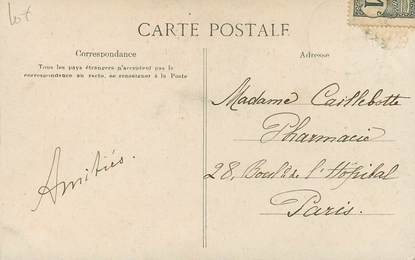 Lot
CARTE POSTALE
Correspondance
Tous les pays étrangers n'acceptent pas la
correspondance au recto, se renseigner à la Poste
Amitiés.
Adresse
Madame Caillebotte
Pharmacie
28, Boul. de l'Hôpital
Paris.
1